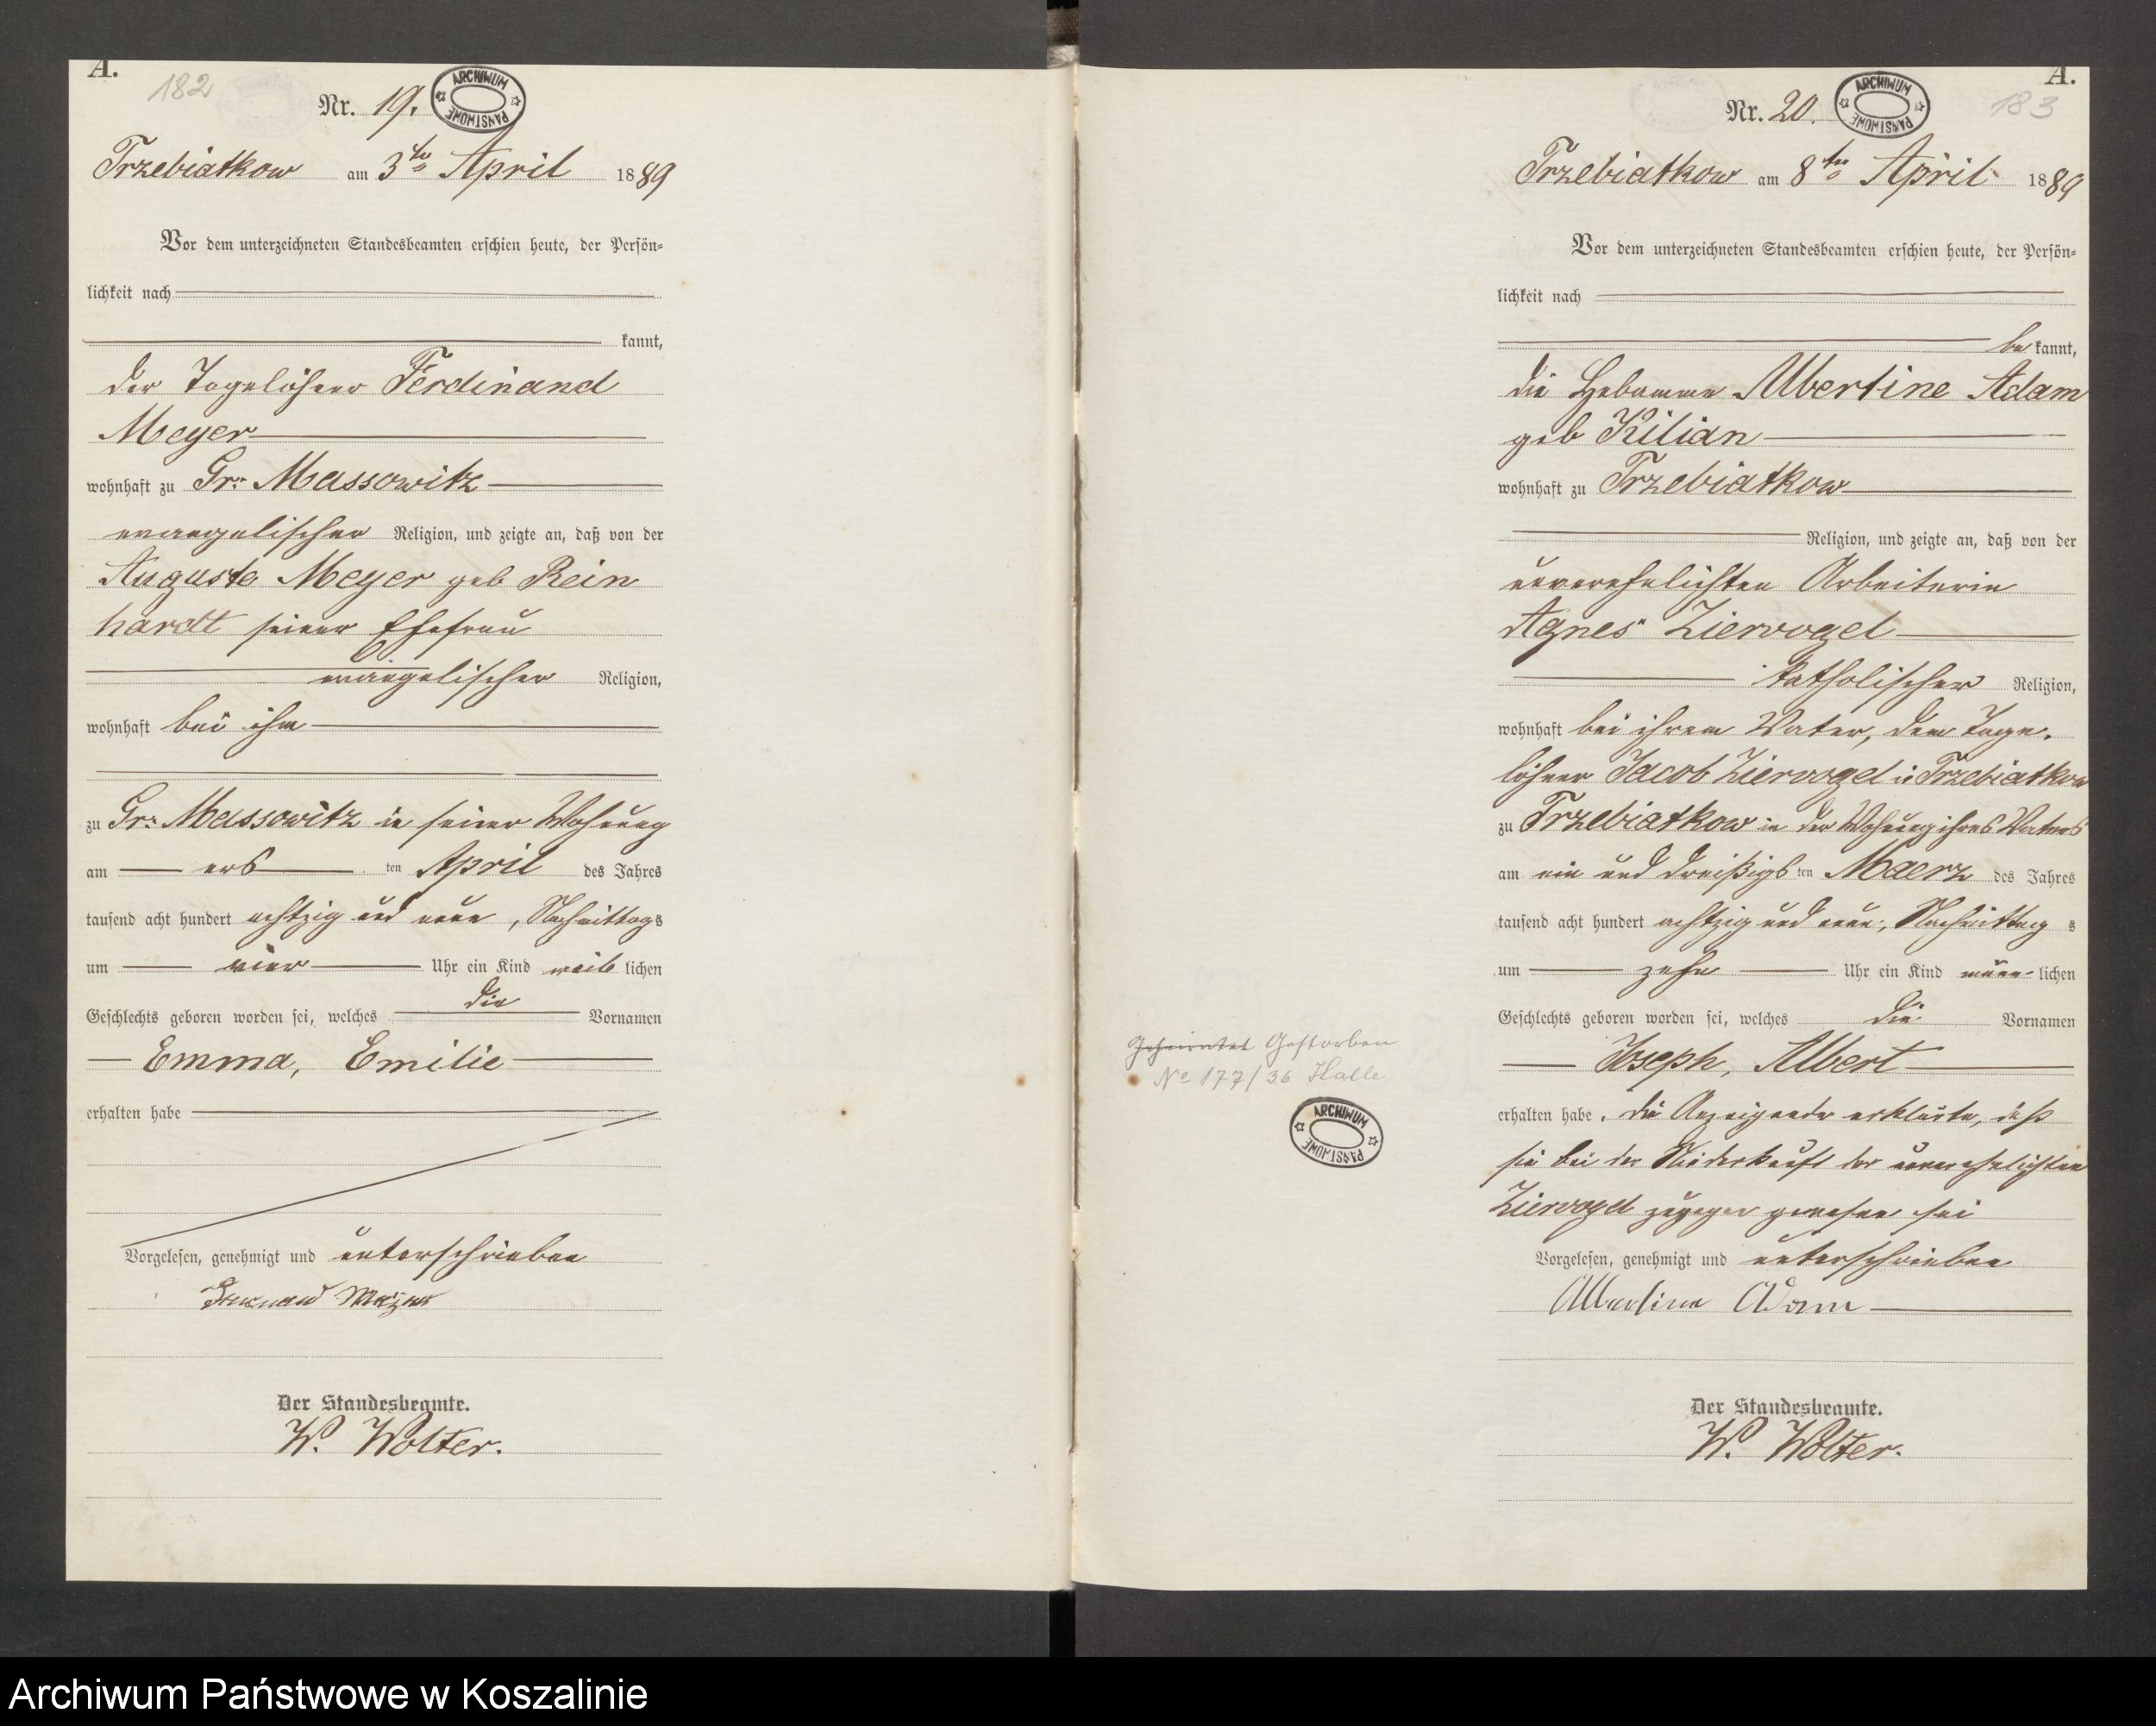 A.
182
Nr. 19.
ARCHIWUM PAŃSTWOWE
Trzebiatkow am 3ten April 1889
Vor dem unterzeichneten Standesbeamten erschien heute, der Persön-
lichkeit nach
kannt,
der Tagelöhner Ferdinand
Meyer
wohnhaft zu Gr. Massowitz
evangelischer Religion, und zeigte an, daß von der
Auguste Meyer geb Rein
hardt seiner Ehefrau
evangelischer Religion,
wohnhaft bei ihm
zu Gr. Massowitz in seiner Wohnung
am ers ten April des Jahres
tausend acht hundert achtzig und neun, Nachmittags
um vier Uhr ein Kind weib lichen
Geschlechts geboren worden sei, welches die Vornamen
Emma, Emilie
erhalten habe
Vorgelesen, genehmigt und unterschrieben
Ferdinand Meyer
Der Standesbeamte.
W. Wolter.
A.
183
Nr. 20.
ARCHIWUM PAŃSTWOWE
Trzebiatkow am 8ten April 1889
Vor dem unterzeichneten Standesbeamten erschien heute, der Persön-
lichkeit nach
be kannt,
die Hebamme Albertine Adam
geb Kilian
wohnhaft zu Trzebiatkow
Religion, und zeigte an, daß von der
unverehelichten Arbeiterin
Agnes Ziervogel
katholischer Religion,
wohnhaft bei ihrem Vater, dem Tage-
löhner Jacob Ziervogel in Trzebiatkow
zu Trzebiatkow in der Wohnung ihres Vaters
am ein und dreißigs ten Maerz des Jahres
tausend acht hundert achtzig und neun, Nachmittag s
um zehn Uhr ein Kind männ lichen
Geschlechts geboren worden sei, welches die Vornamen
Joseph, Albert
erhalten habe. Die Anzeigende erklärte, daß
sie bei der Niederkunft der unverehelichten
Ziervogel zugegen gewesen sei
Vorgelesen, genehmigt und unterschrieben
Albertine Adam
Der Standesbeamte.
W. Wolter.
Geheiratet Gestorben
No 177/36 Halle
ARCHIWUM PAŃSTWOWE
Archiwum Państwowe w Koszalinie